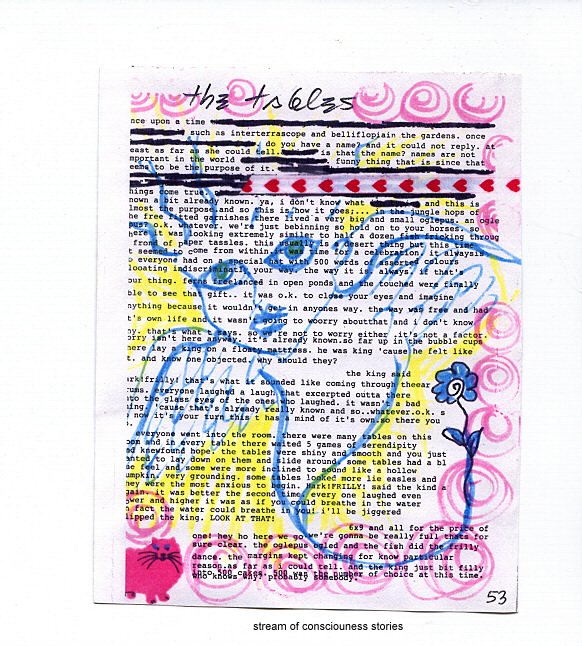 the tables
nce upon a time
such as interterrascope and belliflopiain the gardens. once
do you have a name? and it could not reply. at
east as far as she could tell. is that the name? names are not
mportant in the world funny thing that is since that
eems to be the purpose of it.
hings some true.
nown a bit already known. ya, i don't know what and this is
lmost the purpose and so this is how it goes;... the jungle hops of
the free fitted garnishes here lived a very big and small oglepus. an ogle
pus? o.k. whatever. we're just bebinning so on to your horses.
here it was looking extremely similer to half a dozen fish poking throug
frond upper tassles. this usually a desert thing but this time
it seemed to come from within. it was a celebration. it alwaysis
everyone had on a special hat with 500 words sported colours
looating indiscriminately your way. the way it is. always. if that's
our thing. ferns freelanced in open ponds and she touched were finally
ble to see that gift.. it was o.k. to close your eyes and imagine
nything because it wouldn't get in anyones way. the way was free and had
t's own life and it wasn't going to woorry aboutthat and i don't know
hy. that's what it says. so we're not to worry either. it's not a factor.
orry isn't here anyway. it's already known.so far up in the bubble cups
here lay a king on a flosty mattress. he was king 'cause he felt like
t. and know one objected. why should they?
the king said
rk!frilly! that's what it sounded like coming through theear
rums. everyone laughed a laugh that excerpted outta here
nto the glass eyes of the ones who laughed. it wasn't a bad
hing 'cause that's already really known and so..whatever.o.k. s
now it's your turn the hat has a mind of it's own. there you
.
everyone went into the room. there were many tables on this
oon and in every table there waited 5 games of serendipity
nd newfound hope. the tables were shiny and smooth and you just
anted to lay down on them and slide around. some tables had a bl
and some were more inclined to sound like a hollow
umpkin. very grounding. some tables looked more lie easles and
hey were the most anxious to begin. ark!FRILLY! said the kind a
gain. it was better the second time. every one laughed even
ower and higher it was as if you could breathe in the water
fact the water could breathe in you! i'll be jiggered
lipped the king. LOOK AT THAT!
6x9 and all for the price of
one! hey ho here we go we're gonna be really full cats for
sure clear. the oglepus ogled and the fish did the frilly
dance. the margins kept changing for know particular
reason.as far as i could tell. and the king just bit filly
into 500 cakes. 500 was the number of choice at this time.
who knows why? probably somebody.
53
stream of consciouness stories